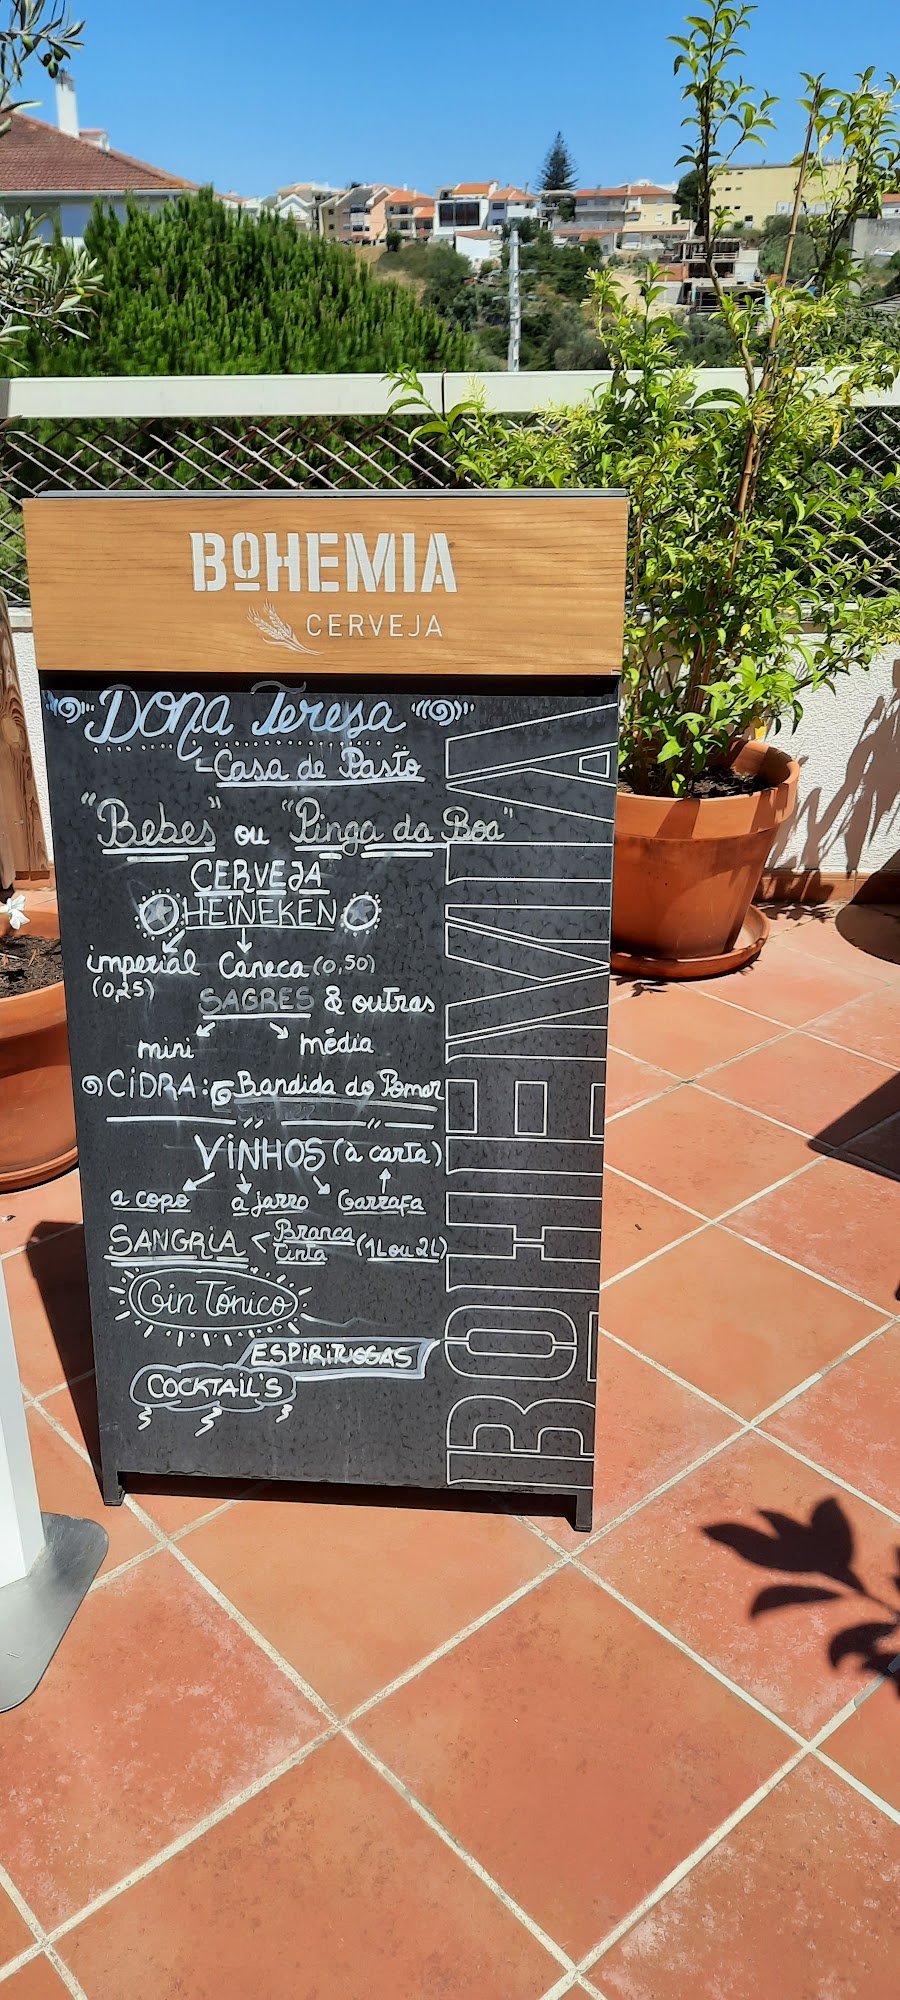 BOHEMIA
CERVEJA
Dona Teresa
Casa de Pasto
"Bebes" ou "Pinga da Boa"
CERVEJA
HEINEKEN
imperial Caneca (0,50)
(0,25)
SAGRES & outras
mini média
CIDRA: Bandida do Pomar
VINHOS (à carta)
a copo a jarro Garrafa
SANGRIA < Branca
Tinta (1L ou 2L)
Gin Tónico
ESPIRITUOSAS
COCKTAIL'S
BOHEMIA